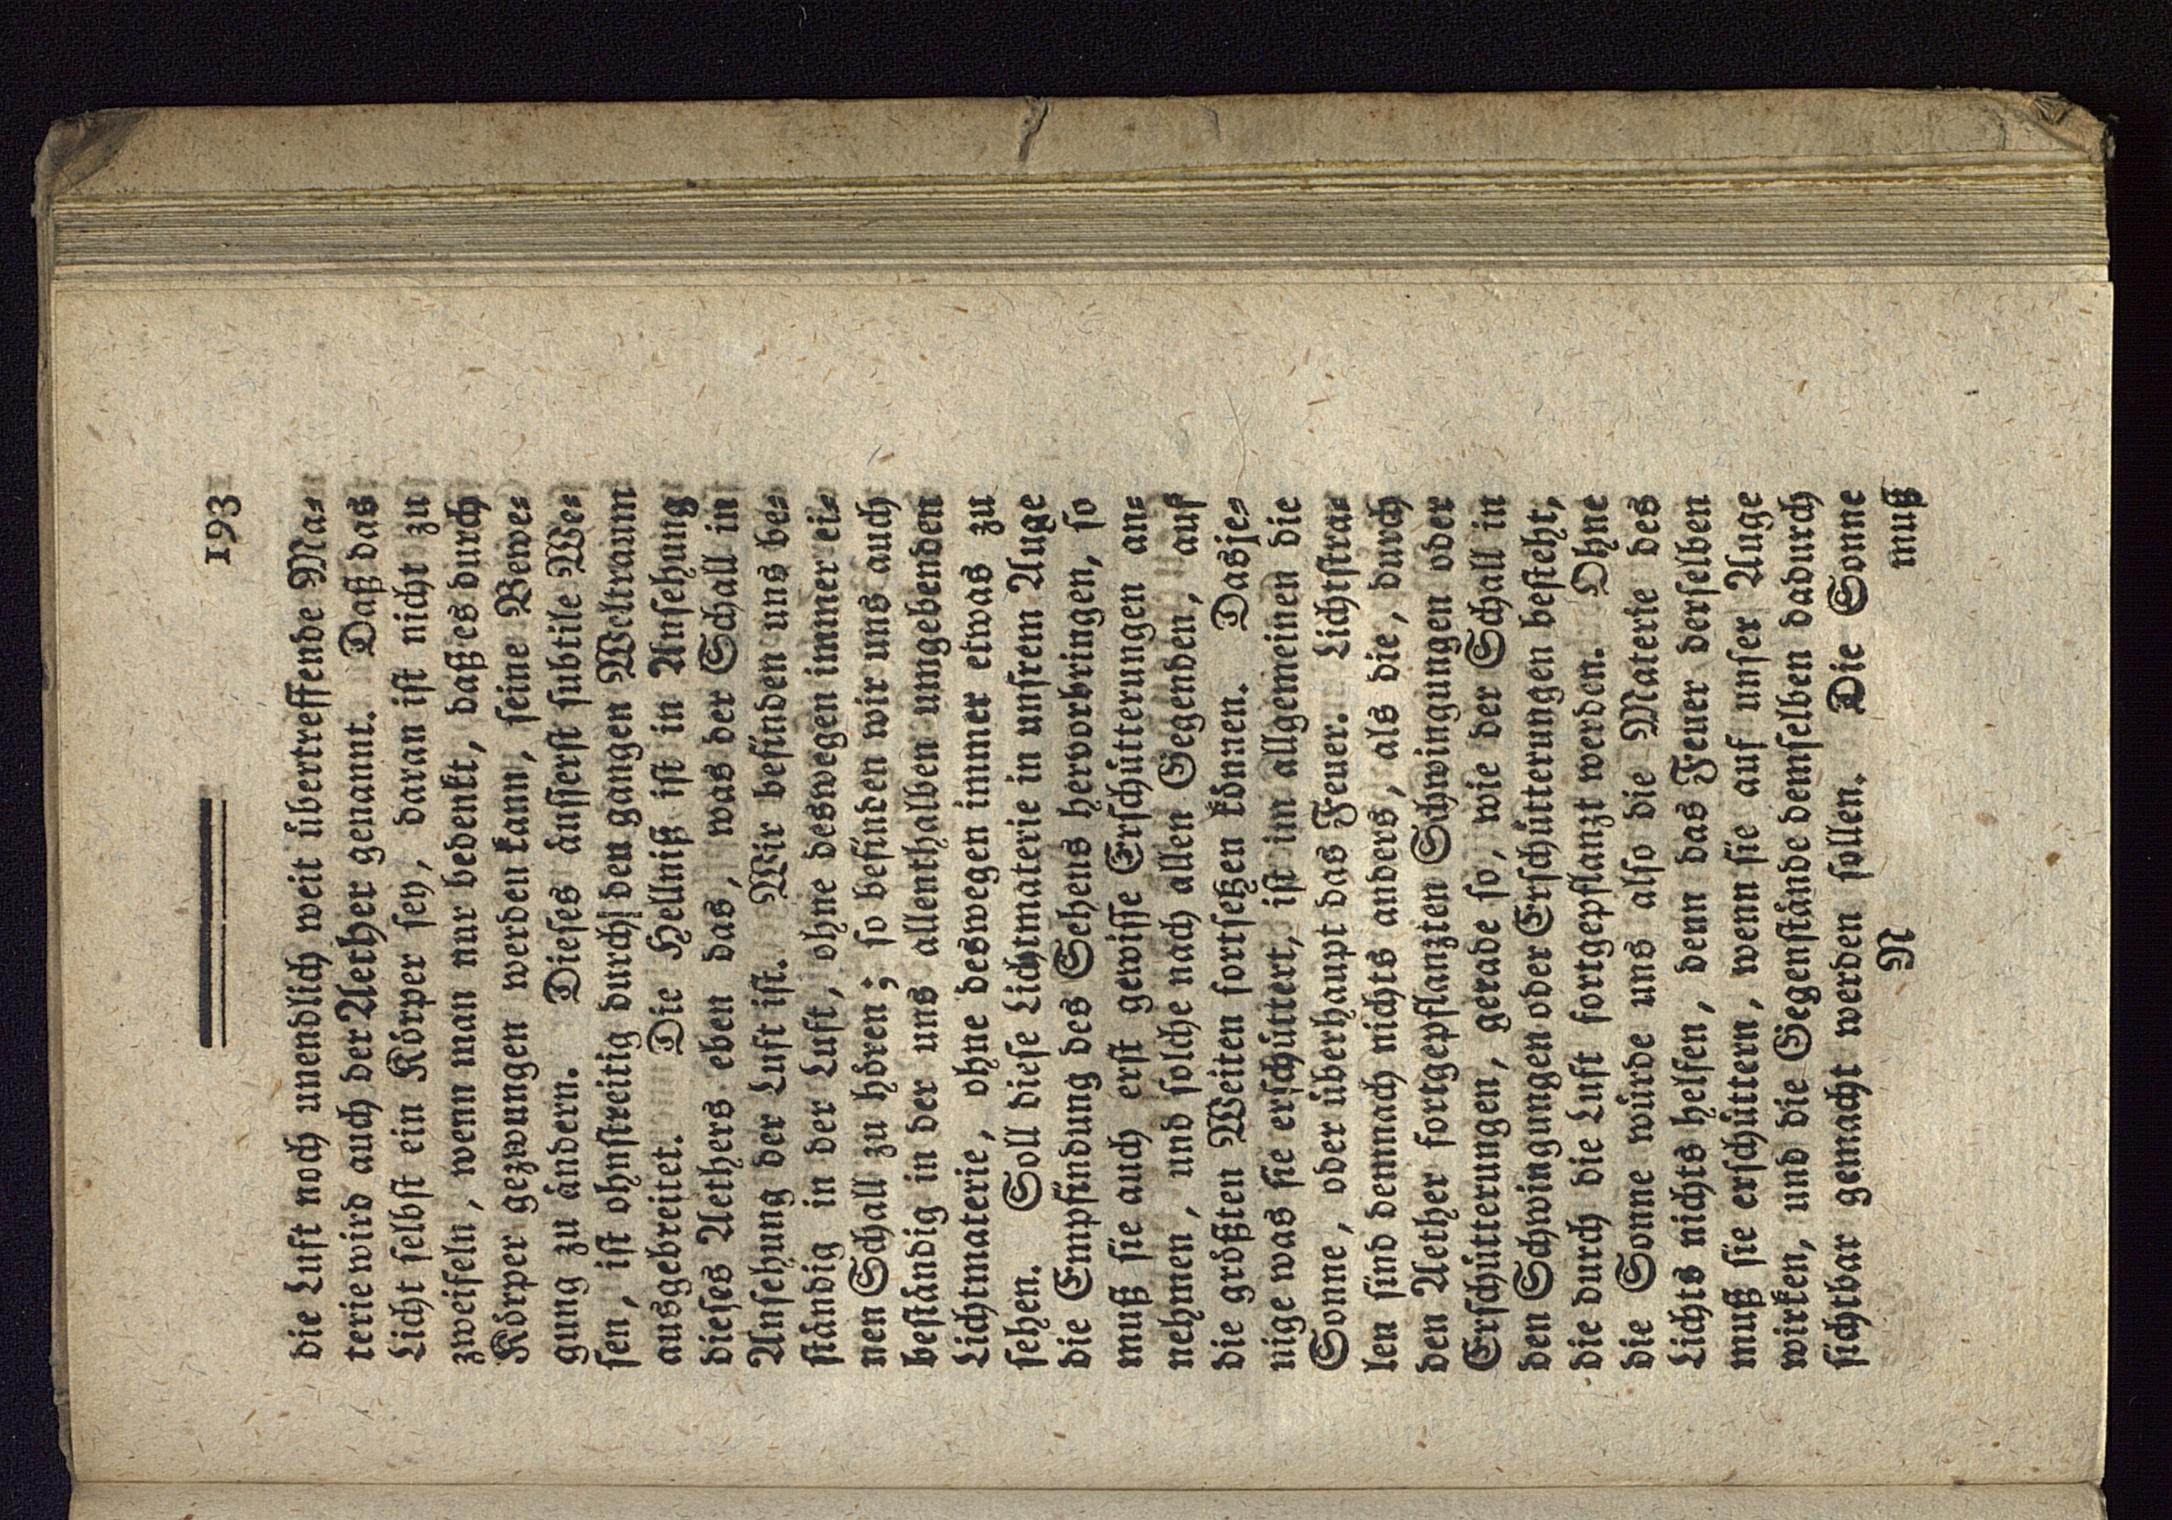 193
die Luft noch unendlich weit übertreffende Ma⸗
terie wird auch der Aether genannt. Daß das
Licht selbst ein Körper sey, daran ist nicht zu
zweifeln, wenn man nur bedenkt, daß es durch
Körper gezwungen werden kann, seine Bewe⸗
gung zu ändern. Dieses äusserst subtile We⸗
sen, ist ohnstreitig durch den gangen Weltraum
ausgebreitet. Die Hellniß ist in Ansehung
dieses Aethers eben das, was der Schall in
Ansehung der Luft ist. Wir befinden uns be⸗
ständig in der Luft, ohne deswegen immer ei⸗
nen Schall zu hören; so befinden wir uns auch
beständig in der uns allenthalben umgebenden
Lichtmaterie, ohne deswegen immer etwas zu
sehen. Soll diese Lichtmaterie in unsrem Auge
die Empfindung des Sehens hervorbringen, so
muß sie auch erst gewisse Erschütterungen an⸗
nehmen, und solche nach allen Gegenden, auf
die größten Weiten fortsetzen können. Dasje⸗
nige was sie erschüttert, ist im allgemeinen die
Sonne, oder überhaupt das Feuer. Lichtstra⸗
len sind demnach nichts anders, als die, durch
den Aether fortgepflanzten Schwingungen oder
Erschütterungen, gerade so, wie der Schall in
den Schwingungen oder Erschütterungen besteht,
die durch die Luft fortgepflanzt werden. Ohne
die Sonne würde uns also die Materie des
Lichts nichts helfen, denn das Feuer derselben
muß sie erschüttern, wenn sie auf unser Auge
wirken, und die Gegenstände demselben dadurch
sichtbar gemacht werden sollen. Die Sonne
N muß